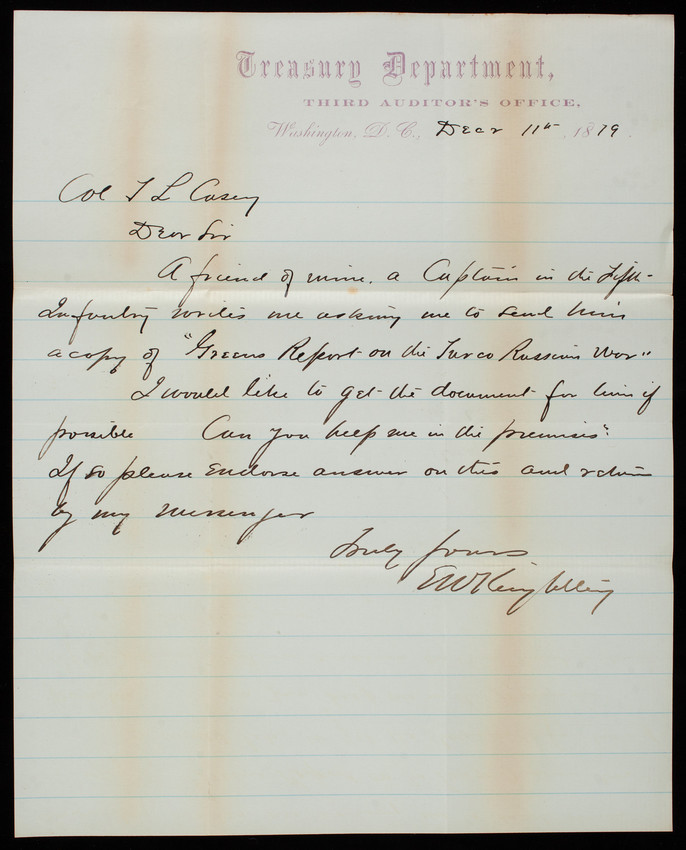 Treasury Department,
THIRD AUDITOR'S OFFICE,
Washington, D. C., Decr 11th 1879.
Col T L Casey
Dear Sir
A friend of mine, a Captain in the Fifth
Infantry writes me asking me to send him
a copy of "Greens Report on the Turco Russian War"
I would like to get the document for him if
possible Can you help me in the premises?
If so please endorse answer on this and return
by my messenger
Truly yours
E W